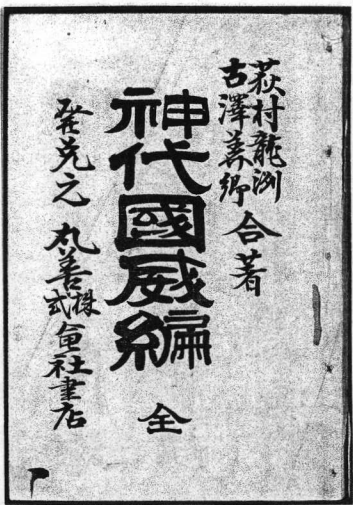 荻村龍洲
古澤善卿 合著
神代國威編 全
發兌元 丸善株式會社書店